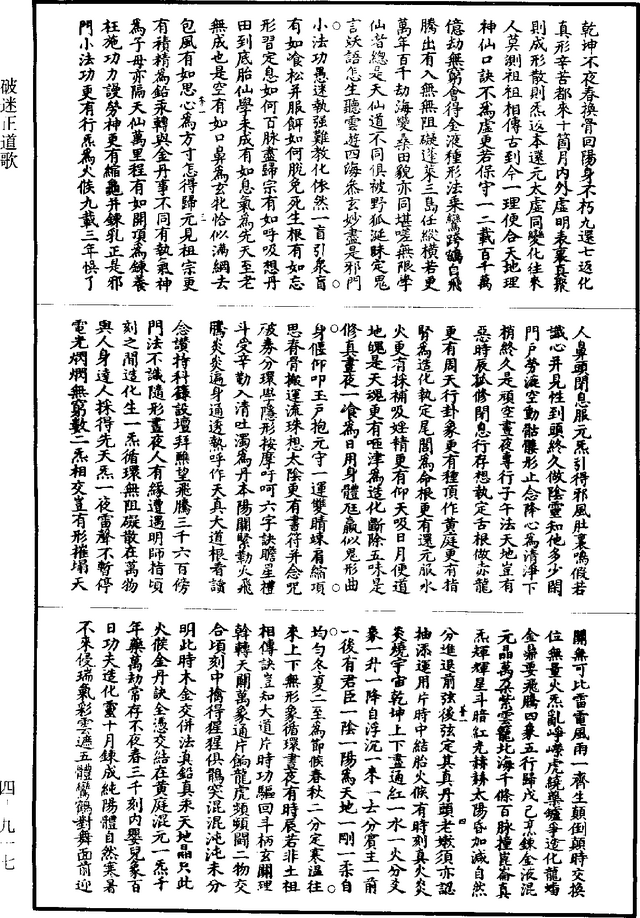 破迷正道歌
四-九一七
乾坤不夜春換骨回陽身不朽九還七返化
真形辛苦都來十箇月內外虛明表裏真聚
則成形散則炁返本還元太虛同變化往來
人莫測祖祖相傳古到今一理便合天地理
神仙口訣不為虛更若保守一二載百千萬
億劫無窮會得金液種形法乘鸞跨鶴自飛
騰出有入無無阻礙蓬萊三島任縱橫若更
萬年百千劫海變桑田貌亦同堪嗟無限學
仙者總是天仙道不同俱被野狐涎昧定鬼
言妖語怎生聽雲遊四海叅玄妙盡是邪門
小法功愚迷執強難教化依然一盲引衆盲
有如飡松并服餌如何脫免死生根有如忘
形習定息如何百脉盡歸宗有如呼吸想丹
田到底胎仙學未成有如息氣為先天至老
無成也是空有如口鼻為玄牝恰似滿網去
包風有如思心為方寸怎得歸元見祖宗更
有積精為鉛汞轉與金丹事不同有執氣神
為子母亦隔天仙萬里程有如開頂為鍊養
枉施功力謾勞神更有縮龜并鍊乳正是邪
門小法功更有行炁為火候九載三年悞了
人鼻頭閉息服元炁引得邪風肚裏鳴假若
識心并見性到頭終久做陰靈知他多少閑
門戶勞漉空動骷髏形止念降心為清淨下
梢終久是頑空晝夜專行子午法天地豈有
惡時辰孤修閉息行存想執定舌根做赤龍
更有周天行卦象更有種頂作黃庭更有指
腎為造化執定尾閭為命根更有還元服水
火更有採補吸婬精更有仰天吸日月便道
地魄是天魂更有咂津為造化斷除五味是
修真晝夜一飡為日用身體尫羸似鬼形曲
身偃仰叩玉戶抱元守一運雙睛竦肩縮項
思脊骨搬運流珠想太陰更有書符并念咒
破券分環學隱形按摩吁呵六字訣瞻星禮
斗受辛勤入清吐濁為丹本陽關緊勒火飛
騰炎炎遍身通透熱呼作天真大道根看讀
念讚持科籙設壇拜醮望飛騰三千六百傍
門法不識隨形晝夜人有緣遭遇明師指頃
刻之間造化生一炁循環無阻礙散在萬物
與人身達人採得先天炁一夜雷聲不暫停
電光焗焗無窮數二炁相交豈有形摧塌天
關無可比雷電風雨一齊生顛倒顛時交換
位無量火炁亂崢嶸虎繞藥爐爭造化龍蟠
金鼎要飛騰四象五行歸戊己烹鍊金液混
元晶萬朶紫雲籠北海千條百脉撞崑崙真
炁輝輝星斗暗紅光赫赫太陽昏加減自然
分進退前弦後弦定其真丹頭老嫩須亦認
抽添運用片時中結胎火候有時刻真火炎
炎燒宇宙乾坤上下盡通紅一水一火分爻
象一升一降自浮沉一來一去分賓主一前
一後有君臣一陰一陽為天地一剛一柔自
均勻冬夏二至為節候春秋二分定寒溫往
來上下無形象循環晝夜有時辰若非土祖
相傳訣豈知大道片時功驅回斗柄玄關理
斡轉天關萬象通片餉龍虎頻頻鬭二物交
合頃刻中擒得猩猩俱鶻突混混沌沌未分
明此時木金交併法真鉛真汞天地晶只此
火候金丹訣全憑交結在黃庭混元一炁千
年藥萬劫常存不夜春三千刻內嬰兒象百
日功夫造化靈十月鍊成純陽體自然寒暑
不來侵瑞氣彩雲遮五體鸞鶴對舞面前迎